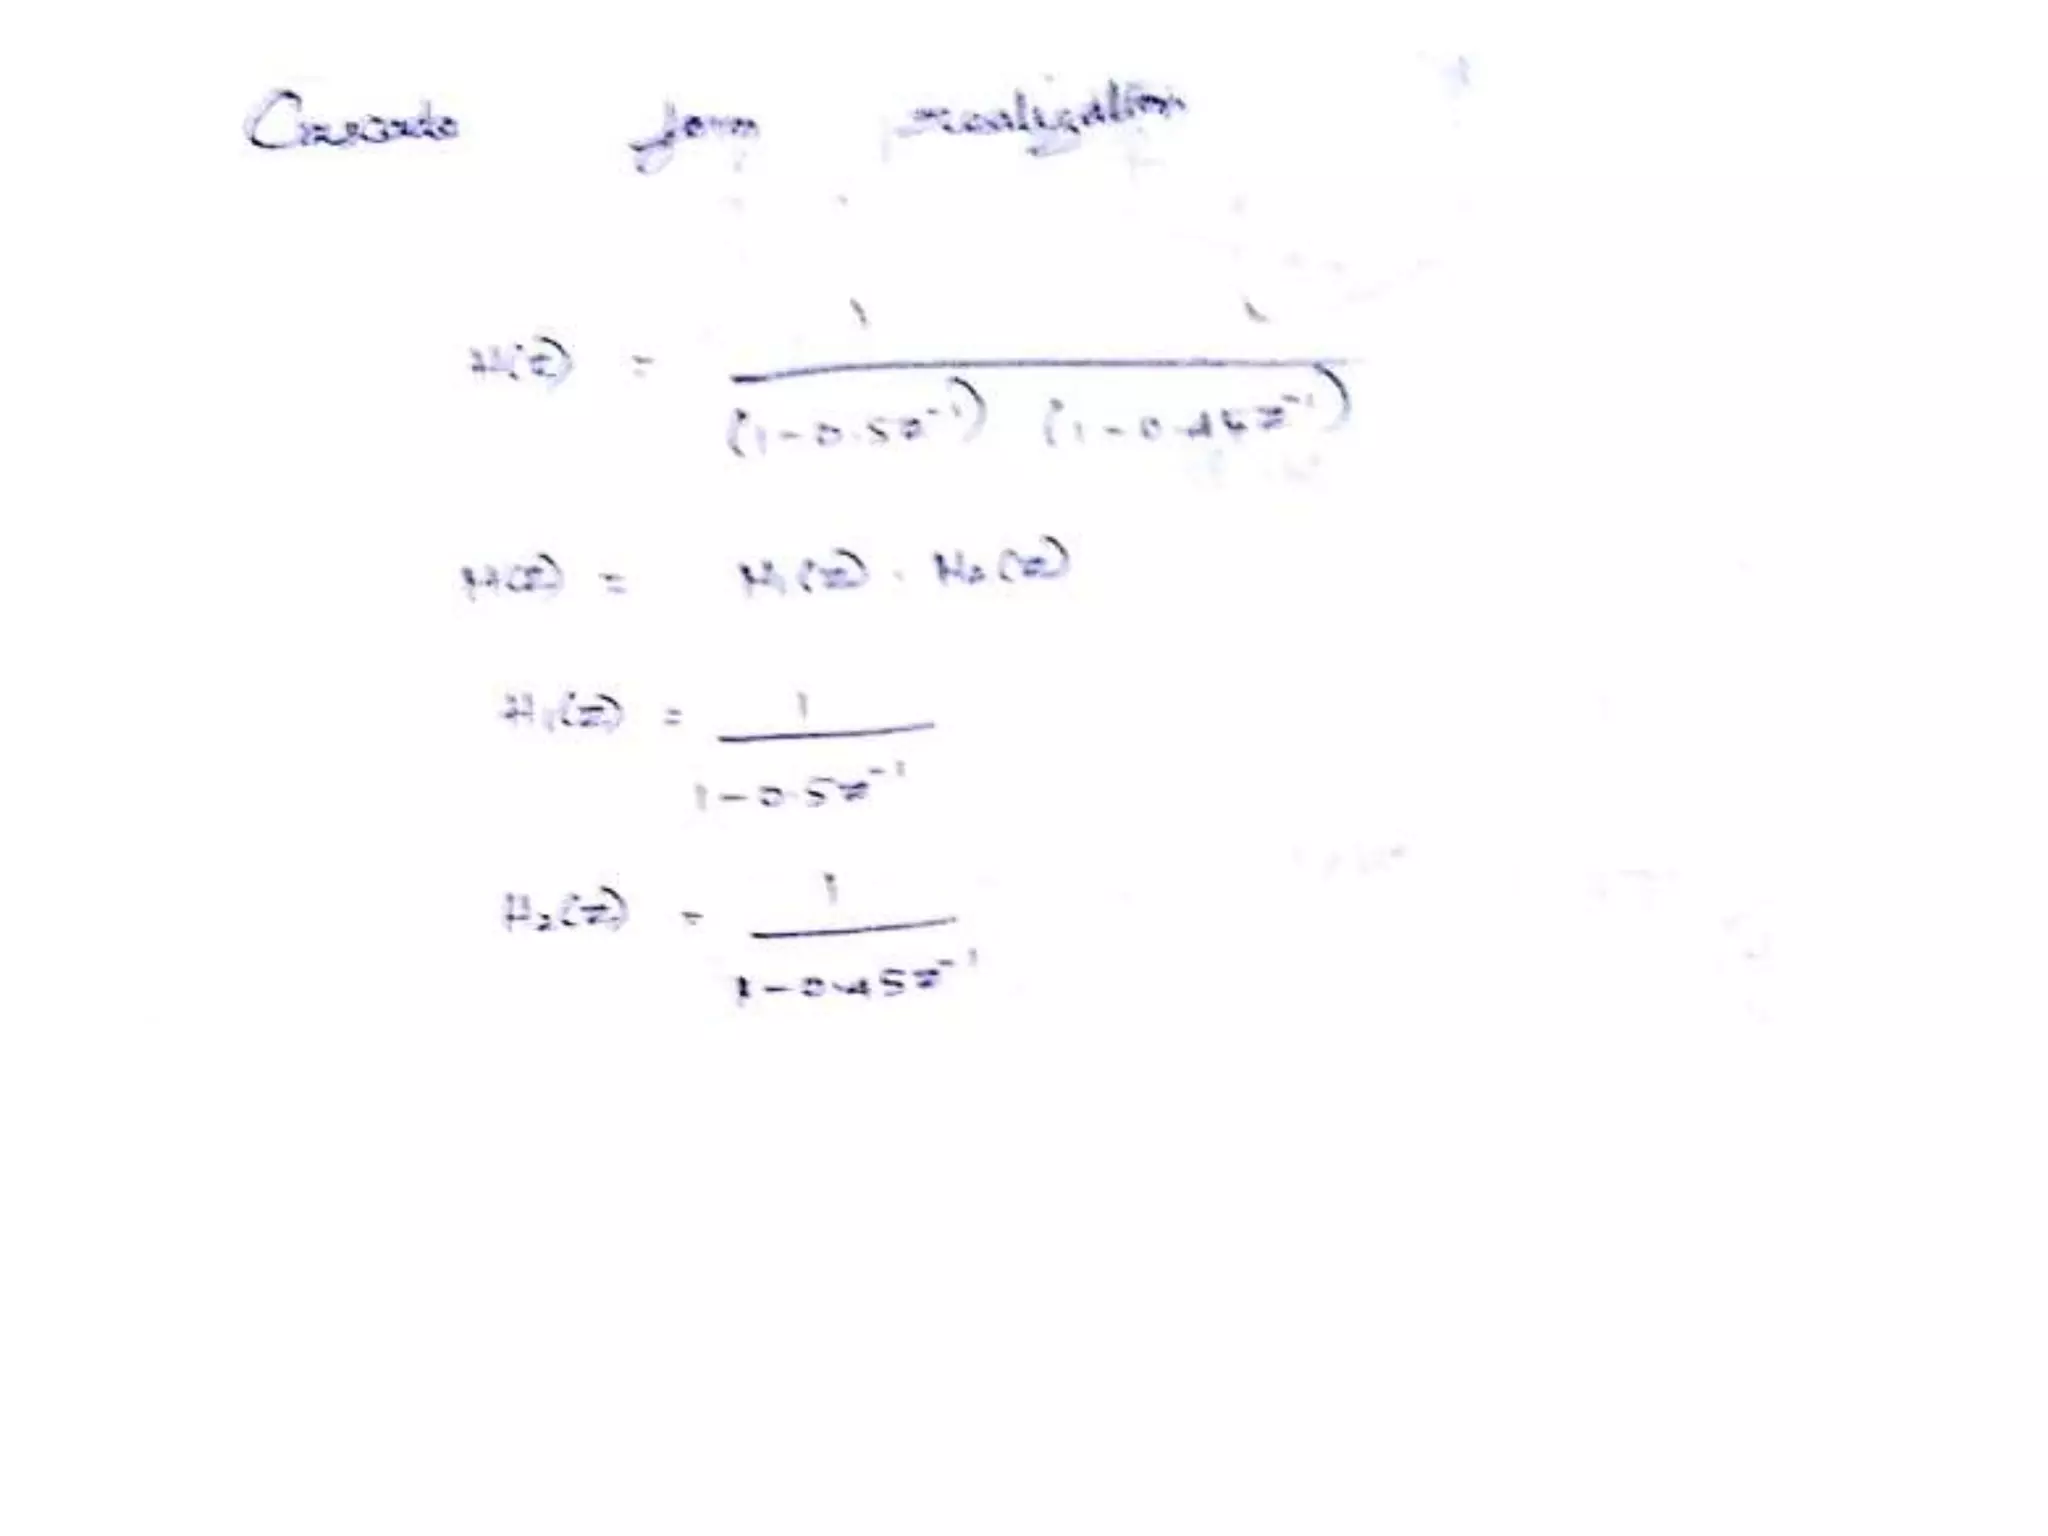 Cascade form realization
1 1
H(z) = ─────────────
(1-0.5z⁻¹) (1-0.45z⁻¹)
H(z) = H₁(z) . H₂(z)
H₁(z) = 1
1-0.5z⁻¹
H₂(z) = 1
1-0.45z⁻¹